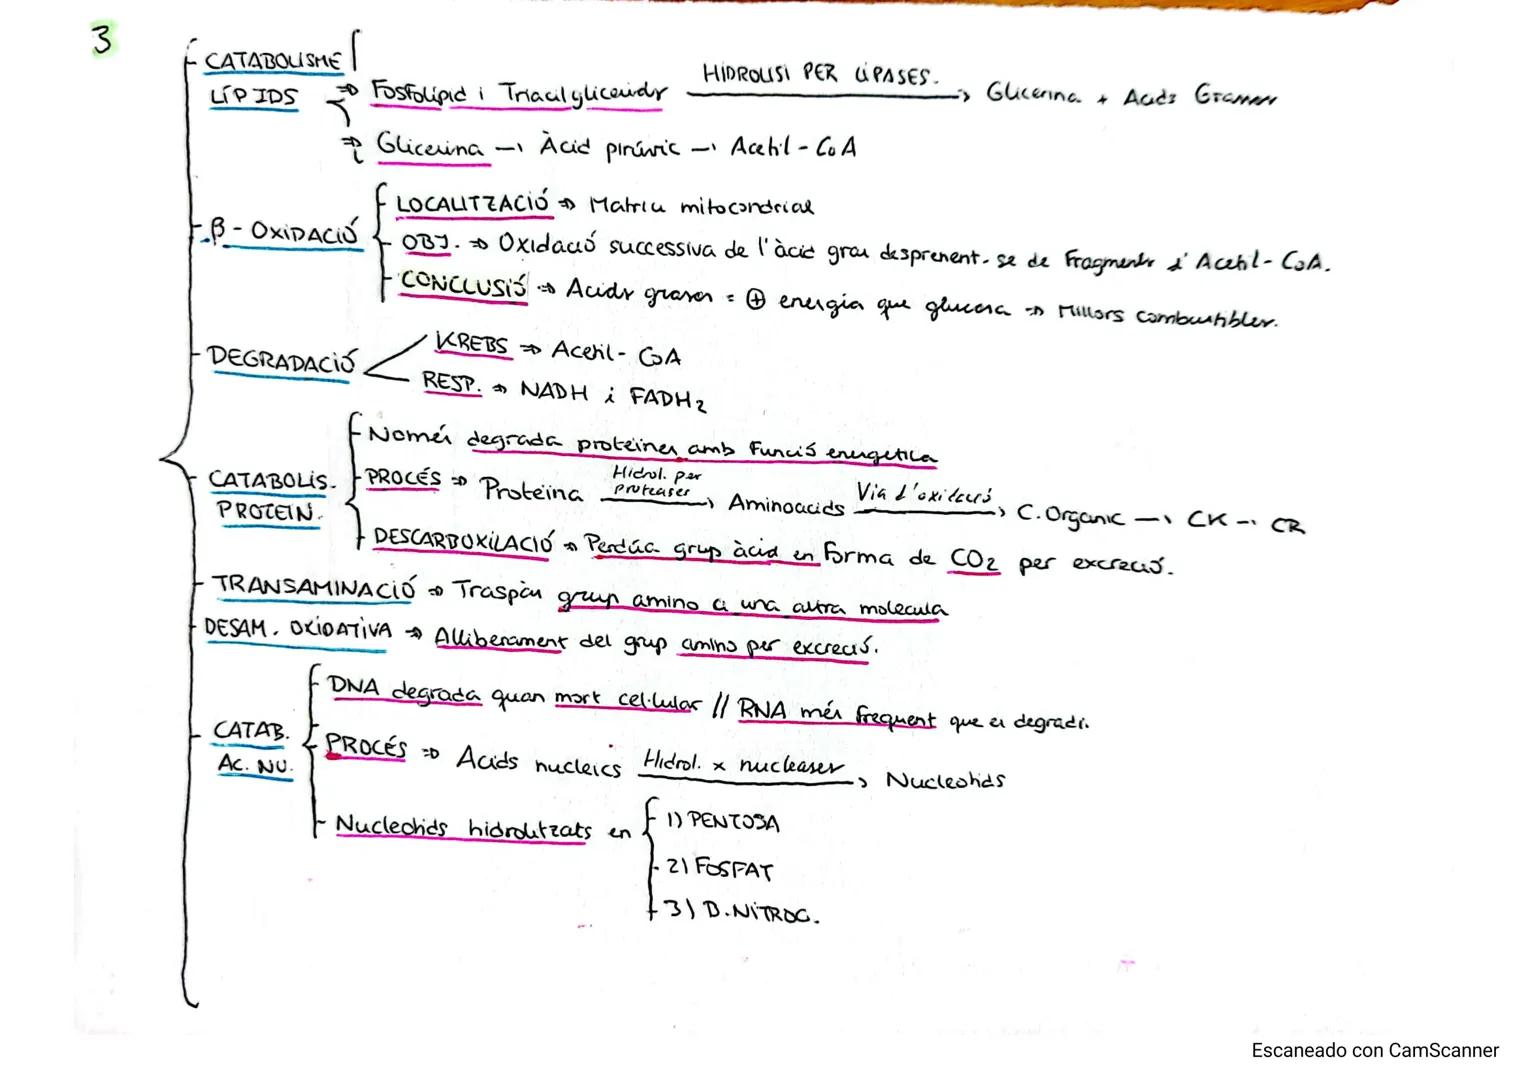 3
CATABOLISME
LÍPIDS
Fosfolípid i Triacilglicerids HIDROLISI PER LIPASES. Glicerina + Acids Grassos
Glicerina → Àcid pirúvic → Acetil-CoA
β-OXIDACIÓ
LOCALITZACIÓ ⇒ Matriu mitocondrial
OBJ. ⇒ Oxidació successiva de l'àcid gras desprenent-se de fragments d'Acetil-CoA.
CONCLUSIÓ ⇒ Acids grasos = ⊕ energia que glucosa ⇒ Millors combustibles.
DEGRADACIÓ
KREBS ⇒ Acetil-CoA
RESP. ⇒ NADH i FADH₂
CATABOLIS.
PROTEIN.
Només degrada proteïnes amb funció energètica
PROCÉS ⇒ Proteïna Hidrol. per proteases → Aminoacids Via d'oxidació → C.Organic → CK → CR
DESCARBOXILACIÓ ⇒ Perdúa grup àcid en forma de CO₂ per excreció.
TRANSAMINACIÓ ⇒ Traspàs grup amino a una altra molecula
DESAM. OXIDATIVA ⇒ Alliberament del grup amino per excreció.
CATAB.
AC. NU.
DNA degrada quan mort cel·lular // RNA més frequent que es degradi.
PROCÉS ⇒ Acids nucleics Hidrol. x nucleases → Nucleotids
Nucleotids hidrolitzats en
1) PENTOSA
2) FOSFAT
3) B.NITROG.
Escaneado con CamScanner